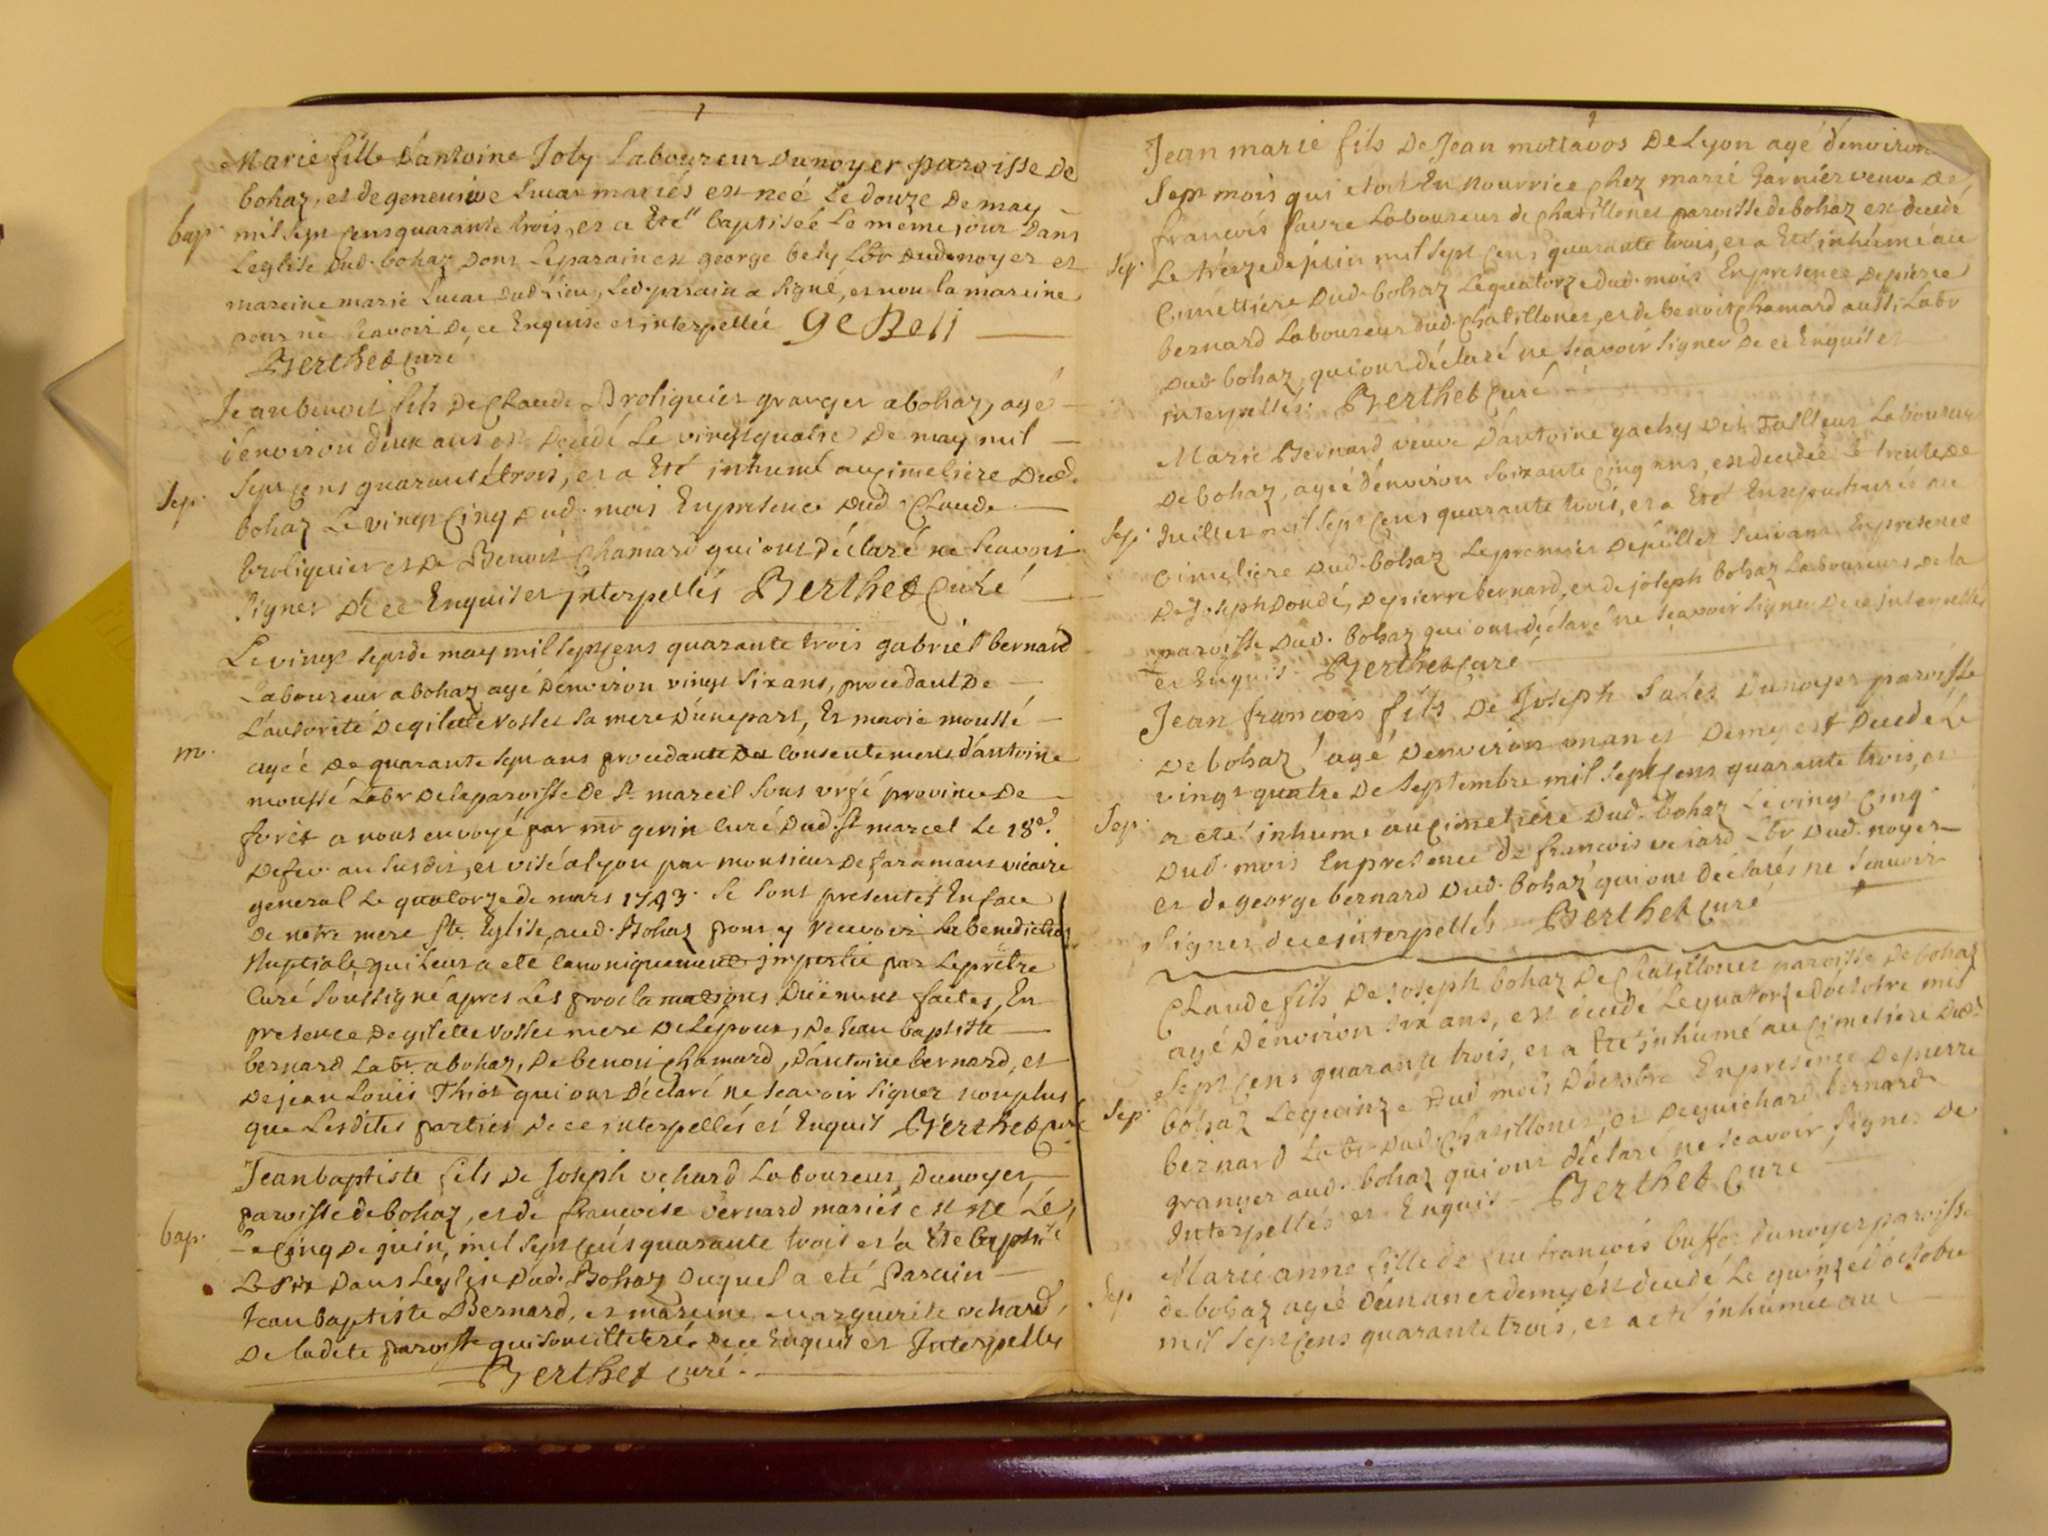 Marie fille D'antoine Joly Laboureur Dunoyer paroisse De
bohaz, et de genevieve Lucar mariés est née Le douze De may
bap. mil sept cens quarante trois, et a Eté baptisée Le même jour Dans
Leglise Dud. bohaz Dont Leparain est george bely Lbr Dud. noyer et
mareine marie Lucar Dud. Lieu, Led. parain a signé, et non la mareine
pour ne scavoir De ce Enquise et interpellée ge Beli
Berthet curé
Jean benoit fils De Claude Broliquier granger a bohaz, agé
d'environ deux ans est Decedé Le vingt quatre De may mil
Sep. Sept cens quarante trois, et a Eté inhumé au cimetiere Dud.
bohaz Le vingt cinq Dud. mois En presence Dud. Claude
broliquier et De Benoit Chamard qui ont Déclaré ne Scavoir
signer De ce Enquis et interpellés Berthet Curé
Le vingt sept de may mil sept cens quarante trois gabriel bernard
Laboureur a bohaz agé D'environ vingt six ans, procedant De
L'autorité De gilette vosset sa mere D'une part, Et marie moussé
m. agée De quarante sept ans procedante Du consentement d'antoine
moussé Labr De la paroisse De St. marcel sous urfé province De
forêt a nous envoyé par mr gerin Curé Dud. St marcel Le 18e.
De fev. an susdit, et visé a lyon par monsieur De faramans vicaire
general Le quatorze de mars 1743. Se sont presentés En face
De notre mere Ste. Eglise aud. Bohaz pour y recevoir La benediction
Nuptiale, qui leur a eté canoniquement impartie par Le prêtre
Curé soussigné apres Les proclamations Duëment faites, En
presence De gilette vosset mere De L'époux, De Jean baptiste
bernard Labr. a bohaz, De benoit chamard, D'antoine bernard, et
De jean Louis Thiot qui ont Déclaré ne scavoir signer non plus
que Lesdites parties De ce interpellés et Enquis Berthet curé
Jean baptiste fils De Joseph vehard Laboureur Dunoyer,
paroisse de bohaz, et de francoise bernard mariés est né Le
bap. Cinq De juin, mil sept cens quarante trois et a Eté baptisé
Le six Dans Leglise Dud. Bohaz Duquel a eté Parain
Jean baptiste Bernard, et mareine marguerite vehard,
De ladite paroisse qui sont illiterés De ce Enquis et Interpellés
Berthet curé.
Jean marie fils De Jean mottavos De Lyon agé d'environ
Sept mois qui etoit En nourrice chez marie garnier veuve De
francois favre Laboureur de Chatillonet paroisse de bohaz est decedé
Sep. Le treze de juin mil sept cens quarante trois, et a Eté inhumé au
Cimettiere Dud. bohaz Le quatorze dud. mois En presence De pierre
bernard Laboureur Dud. Chatillonet, et de benoit Chamard aussi Labr
Dud. bohaz, qui ont déclaré ne scavoir signer De ce Enquis et
interpellés. Berthet Curé
Marie Bernard veuve D'antoine gachy Dit Tailleur Laboureur
De bohaz, agée d'environ soixante cinq ans, est decedée Le trente De
Sep. Juillet mil sept cens quarante trois, et a Eté Ensepulturée au
cimetiere Dud. bohaz Le premier De juillet suivant En presence
De Joseph Dondé, De pierre bernard, et de joseph bohaz Laboureurs De la
paroisse Dud. bohaz qui ont déclaré ne scavoir signer De ce interpellés
et Enquis. Berthet curé
Jean francois fils De Joseph Dunoyer paroisse
De bohaz agé D'environ un an et Demy est Decedé Le
vingt quatre De septembre mil sept cens quarante trois, et
Sep. a eté inhumé au cimetiére Dud. bohaz Le vingt cinq
Dud. mois En presence De francois Lbr Dud. noyer
et de george bernard Dud. bohaz qui ont déclarés ne scavoir
signer de ce interpellés Berthet curé
Claude fils De joseph bohaz De Chatillonet paroisse De bohaz
agé D'environ six ans, est decedé Le quatorze d'octobre mil
sept cens quarante trois, et a Eté inhumé au cimetiere Dud.
Sep. bohaz Le quinze dud mois D'octobre En presence De pierre
bernard Labr Dud. Chatillonet, et De guichard bernard
granger aud. bohaz qui ont déclaré ne scavoir signer De
interpellés et Enquis Berthet Curé
Marie anne fille de feu francois buffo dunoyer paroisse
Sep. de bohaz agée d'un an et demy est decedé Le quinze d'octobre
mil sept cens quarante trois, et a eté inhumée au